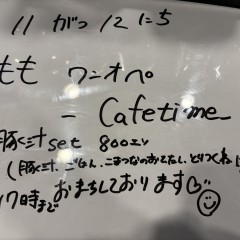 11 がつ 12 にち
もも ワンオペ
- Cafetime
豚汁 set 800エン
(豚汁、ごはん、こまつなのおひたし、とりつくね
17時までおまちしております